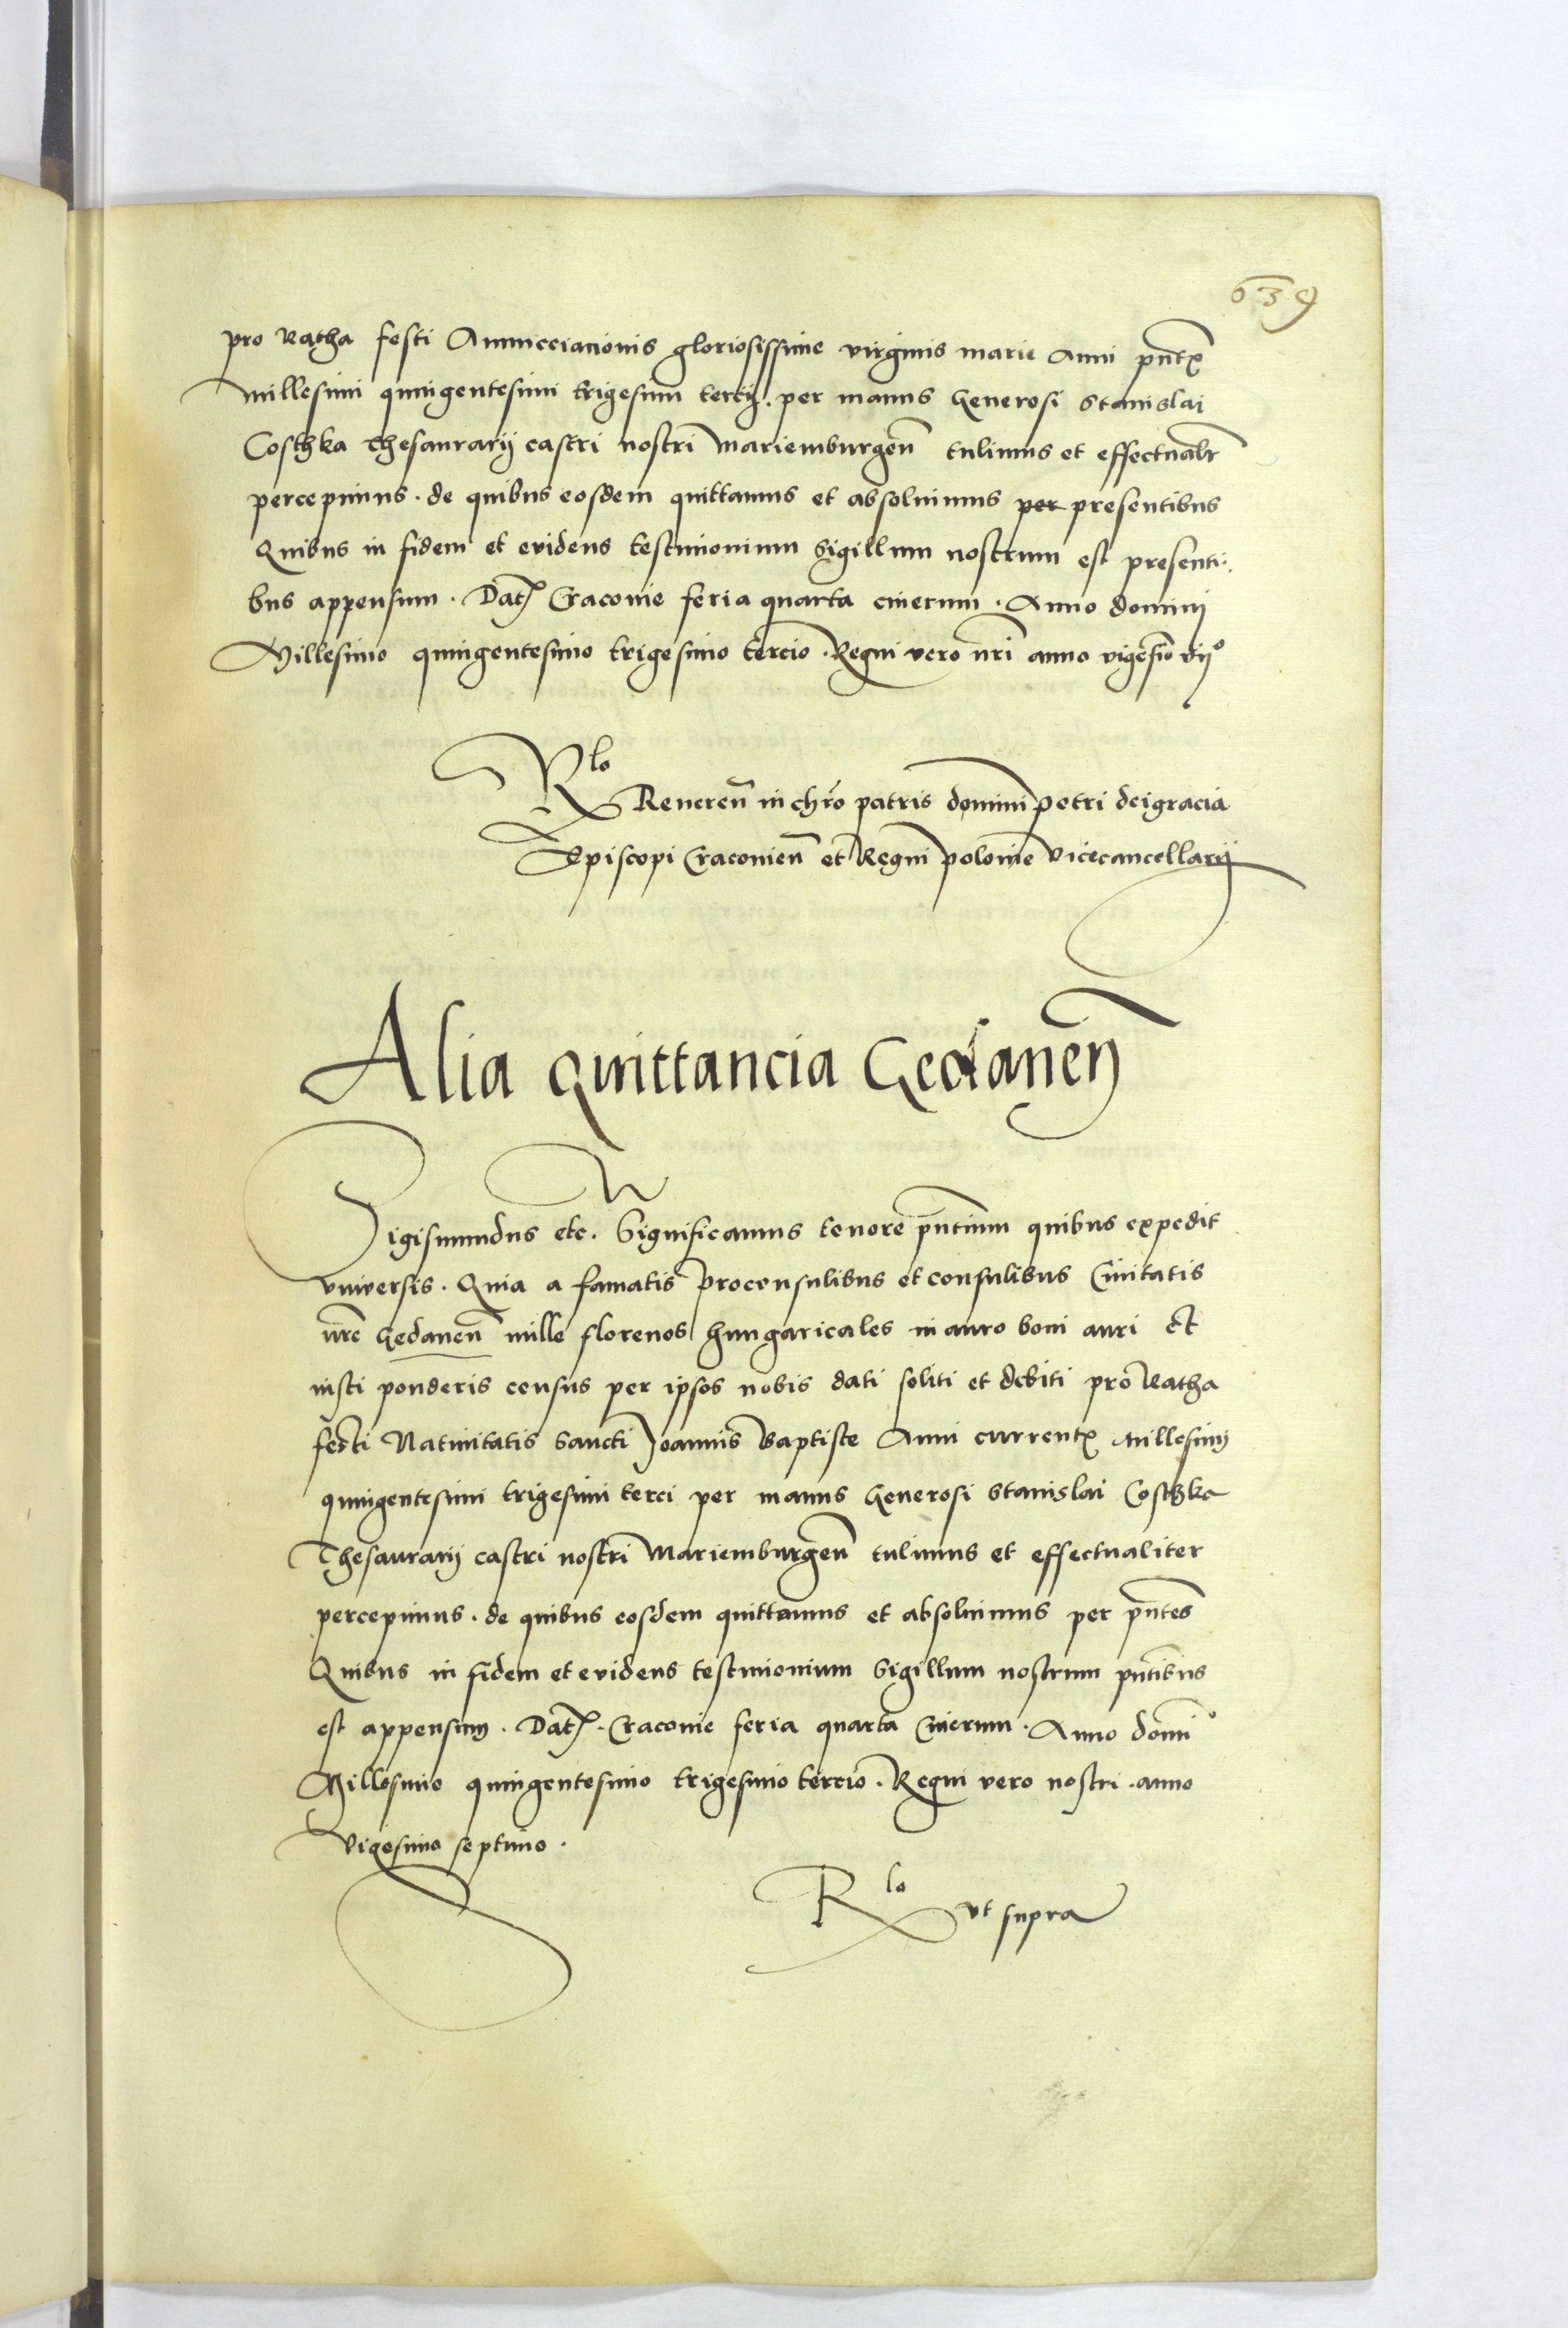 639
pro Ratha festi Annuncciacionis gloriosissime virginis marie Anni pñtꝭ
millesimi quingentesimi trigesimi tercij. per manus Generosi Stanislai
Costhka Thesaurarij castri nostri Mariemburgeñ tulimus et effectualr̃
percepimus. de quibus eosdem quittamus et absoluimus per presentibus
Quibus in fidem et euidens testimonium Sigillum nostrum est presenti:
bus appensum. Datꝭ Cracouie feria quarta cinerum. Anno dominj
Millesimo quingentesimo trigesimo tercio. Regni vero nr̃i anno vigesiõ vijº
Rlo Reuereñ in chr̃o patris domini petri deigracia
Episcopi Cracouieñ et Regni polonie vicecancellarij
Alia quittancia Gedaneñ
Sigismundus etc. Significamus tenore pñtium quibus expedit
vniuersis. Quia a famatis proconsulibus et consulibus Ciuitatis
nr̃e Gedaneñ mille florenos hungaricales in auro boni auri Et
iusti ponderis census per ipsos nobis dati soliti et debiti pro Ratha
festi Natiuitatis Sancti Joannis Baptiste Anni currentꝭ millesimj
quingentesimi trigesimi terci per manus Generosi Stanislai Costhka
Thesaurarij castri nostri Mariemburgeñ tulimus et effectualiter
percepimus. de quibus eosdem quittamus et absoluimus per pñtes
Quibus in fidem et euidens testimonium Sigillum nostrum pñtibus
est appensum. Datꝭ. Cracouie feria quarta Cinerum. Anno domĩ
Millesimo quingentesimo trigesimo tercio. Regni vero nostri. anno
vigesimo septimo.
Rlo vt supra